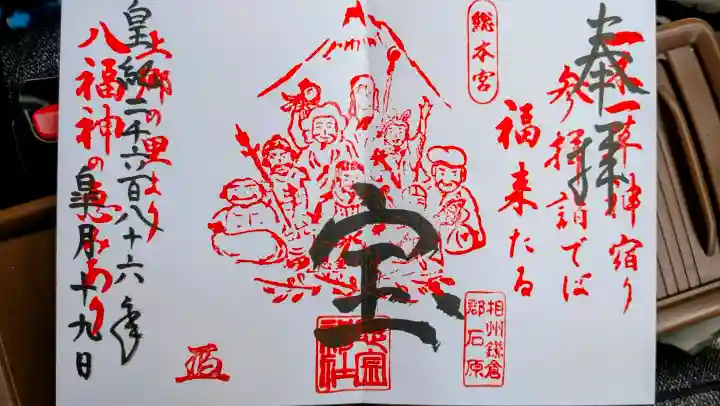 奉拝
一木一草神宿り
参拝詣でば
福来たる
総本宮
宝
相州鎌倉
郡石原
上郷の里より
八福神の恵みあり
皇紀二千六百八十六年
皐月十九日